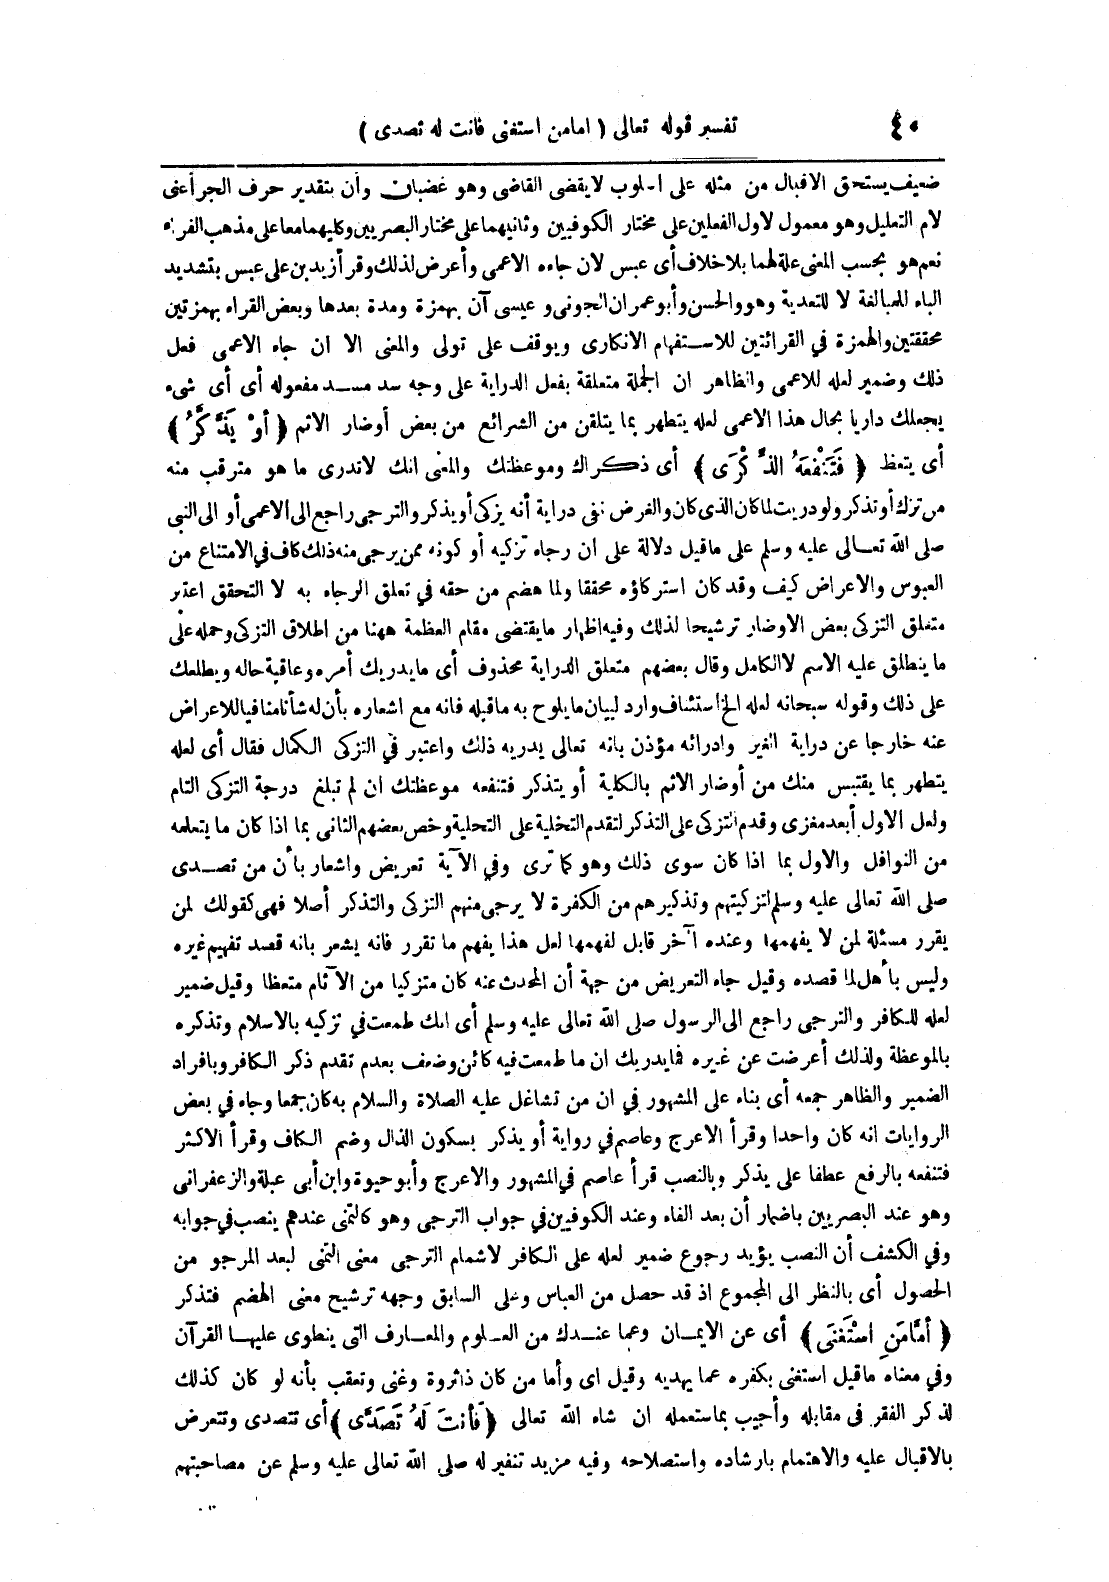 ٤٠ تفسير قوله تعالى ( امامن استغنى فانت له تصدى )
ضعيف يستحق الاقبال من مثله على اسلوب لا يقضى القاضى وهو غضبان وأن بتقدير حرف الجر أعنى
لام التعليل وهو معمول لاول الفعلين على مختار الكوفيين وثانيهما على مختار البصريين وكليهما معا على مذهب الفراء
نعم هو بحسب المعنى علة لهما بلا خلاف أى عبس لان جاءه الاعمى وأعرض لذلك وقرأ زيد بن على عبس بتشديد
الباء للمبالغة لا للتعدية وهو والحسن وأبو عمران الجونى و عيسى آن بهمزة ومدة بعدها وبعض القراء بهمزتين
محققتين والهمزة في القرائتين للاستفهام الانكارى ويوقف على تولى والمعنى الا ان جاء الاعمى فعل
ذلك وضمير لعله للاعمى والظاهر ان الجملة متعلقة بفعل الدراية على وجه سد مسد مفعوله أى أى شىء
يجعلك داريا بحال هذا الاعمى لعله يتطهر بما يتلقن من الشرائع من بعض أوضار الاثم ﴿ أَوْ يَذَّكَّرُ ﴾
أى يتعظ ﴿ فَتَنْفَعَهُ الذِّكْرَى ﴾ أى ذكراك وموعظتك والمعنى انك لاتدرى ما هو مترقب منه
من تزك أو تذكر ولو دريت لما كان الذى كان والغرض نفى دراية أنه يزكى أو يذكر والترجى راجع الى الاعمى أو الى النبى
صلى الله تعالى عليه وسلم على ماقيل دلالة على ان رجاء تزكيه أو كونه ممن يرجى منه ذلك كاف في الامتناع من
العبوس والاعراض كيف وقد كان استزكاؤه محققا ولما هضم من حقه في تعلق الرجاء به لا التحقق اعتبر
متعلق التزكى بعض الاوضار ترشيحا لذلك وفيه اظهار ما يقتضى مقام العظمة ههنا من اطلاق التزكى وحمله على
ما ينطلق عليه الاسم لا الكامل وقال بعضهم متعلق الدراية محذوف أى ما يدريك أمره وعاقبة حاله ويطلعك
على ذلك وقوله سبحانه لعله الخ استئناف وارد لبيان ما يلوح به ما قبله فانه مع اشعاره بأن له شأنا منافيا للاعراض
عنه خارجا عن دراية الغير وادرائه مؤذن بانه تعالى يدريه ذلك واعتبر في التزكى الكمال فقال أى لعله
يتطهر بما يقتبس منك من أوضار الاثم بالكلية أو يتذكر فتنفعه موعظتك ان لم تبلغ درجة التزكى التام
ولعل الاول أبعد مغزى وقدم التزكى على التذكر لتقدم التخلية على التحلية وخص بعضهم الثانى بما اذا كان ما يتعلمه
من النوافل والاول بما اذا كان سوى ذلك وهو كما ترى وفي الآية تعريض واشعار بأن من تصدى
صلى الله تعالى عليه وسلم لتزكيتهم وتذكيرهم من الكفرة لا يرجى منهم التزكى والتذكر أصلا فهى كقولك لمن
يقرر مسئلة لمن لا يفهمها وعنده آخر قابل لفهمها لعل هذا يفهم ما تقرر فانه يشعر بانه قصد تفهيم غيره
وليس بأهل لما قصده وقيل جاء التعريض من جهة أن المحدث عنه كان متزكيا من الآثام متعظا وقيل ضمير
لعله للكافر والترجى راجع الى الرسول صلى الله تعالى عليه وسلم أى انك طمعت في تزكيه بالاسلام وتذكره
بالموعظة ولذلك أعرضت عن غيره فما يدريك ان ما طمعت فيه كائن وضعف بعدم تقدم ذكر الكافر وبافراد
الضمير والظاهر جمعه أى بناء على المشهور في ان من تشاغل عليه الصلاة والسلام به كان جمعا وجاء في بعض
الروايات انه كان واحدا وقرأ الاعرج وعاصم في رواية أو يذكر بسكون الذال وضم الكاف وقرأ الاكثر
فتنفعه بالرفع عطفا على يذكر وبالنصب قرأ عاصم في المشهور والاعرج وأبو حيوة وابن أبى عبلة والزعفرانى
وهو عند البصريين باضمار أن بعد الفاء وعند الكوفيين في جواب الترجى وهو كالتمنى عندهم ينصب في جوابه
وفي الكشف أن النصب يؤيد رجوع ضمير لعله على الكافر لاشمام الترجى معنى التمنى لبعد المرجو من
الحصول أى بالنظر الى المجموع اذ قد حصل من العباس وعلى السابق وجهه ترشيح معنى الهضم فتذكر
﴿ أَمَّا مَنِ اسْتَغْنَى ﴾ أى عن الايمان وعما عندك من العلوم والمعارف التى ينطوى عليها القرآن
وفي معناه ماقيل استغنى بكفره عما يهديه وقيل اى وأما من كان ذا ثروة وغنى وتعقب بأنه لو كان كذلك
لذكر الفقر في مقابله وأجيب بما ستعلمه ان شاء الله تعالى ﴿ فَأَنْتَ لَهُ تَصَدَّى ﴾ أى تتصدى وتتعرض
بالاقبال عليه والاهتمام بارشاده واستصلاحه وفيه مزيد تنفير له صلى الله تعالى عليه وسلم عن مصاحبتهم